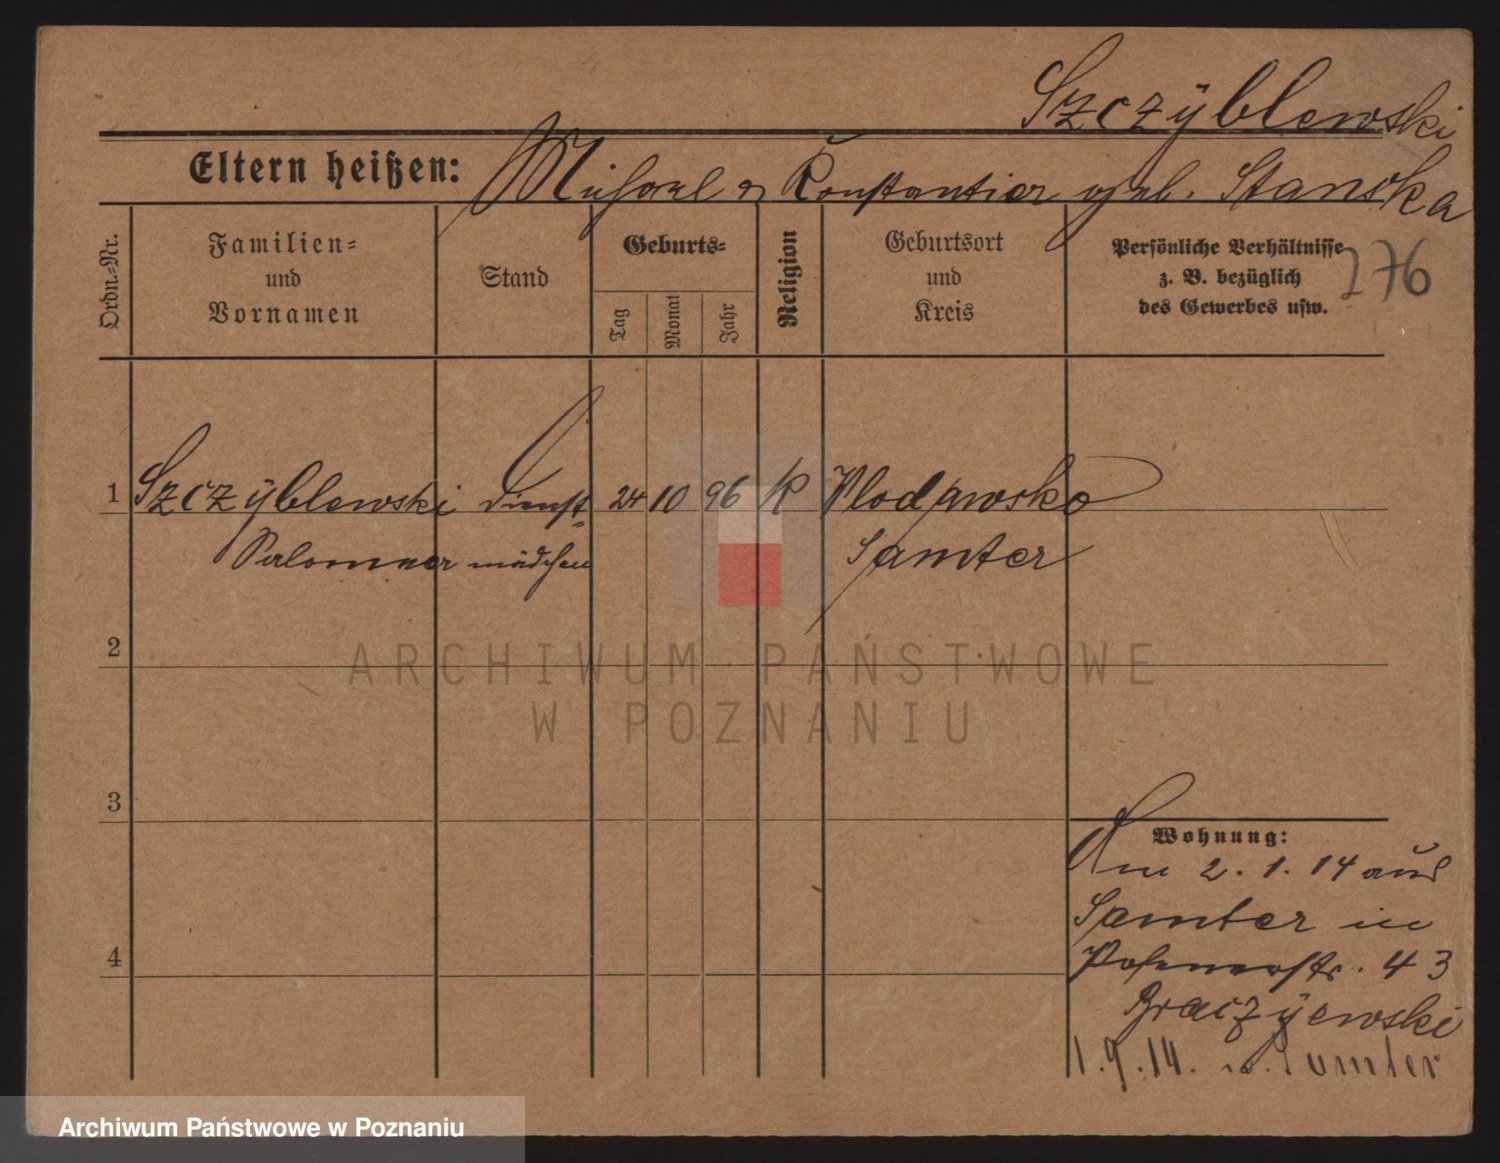 Szczÿblewski
Eltern heißen: Michael u Konstantior geb. Stanska
Ordn.=Nr.
Familien=
und
Vornamen
Stand
Geburts=
Tag
Monat
Jahr
Religion
Geburtsort
und
Kreis
Persönliche Verhältnisse
z. B. bezüglich
des Gewerbes usw.
276
1 Szczÿblewski Dienst= 24 10 96 K
Samter
mädchen
2
3
4
Wohnung:
Am 2. 1. 14 aus
Samter in
Posenerstr. 43
1.9.14. n. Samter
ARCHIWUM PAŃSTWOWE
W POZNANIU
Archiwum Państwowe w Poznaniu